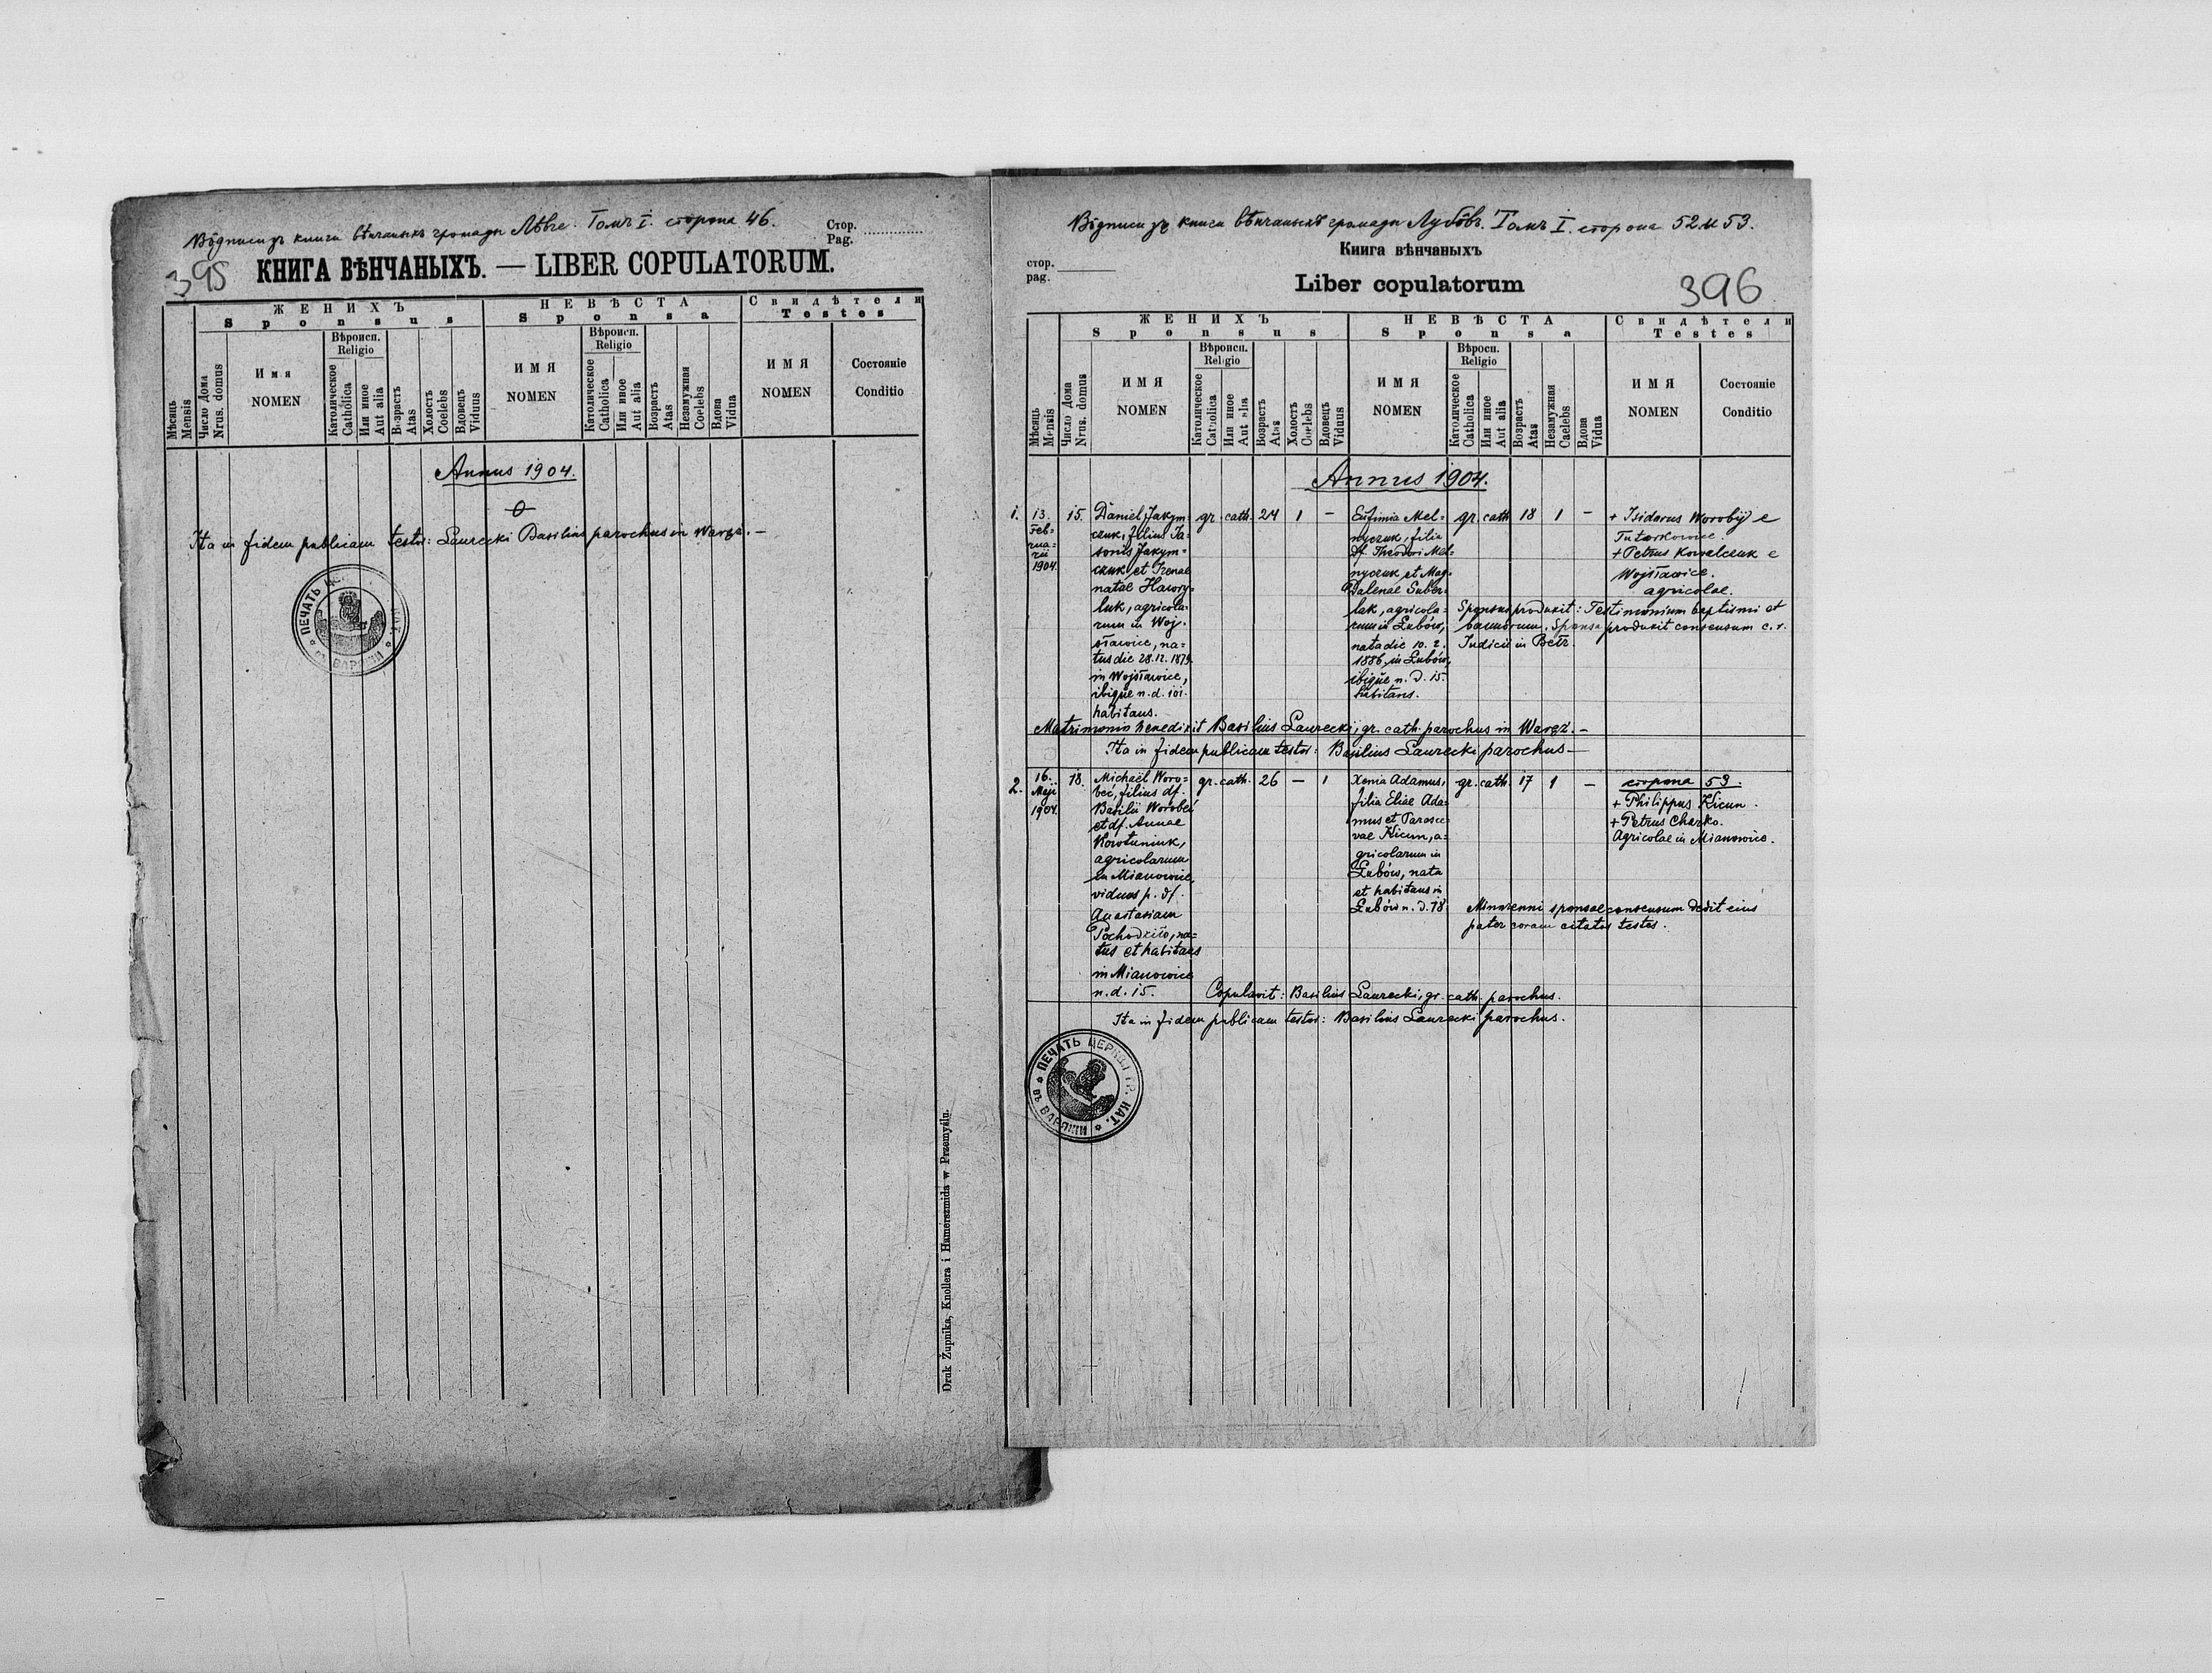 Вôдписи зъ книги вѣнчаныхъ громады Лѣвче. Томъ I. сторона 46.
Стор.
Pag.
395
КНИГА ВѢНЧАНЫХЪ. — LIBER COPULATORUM.
ЖЕНИХЪ
Sponsus
НЕВѢСТА
Sponsa
Свидѣтели
Testes
Мѣсяць
Mensis
Число Дома
Nrus. domus
Имя
NOMEN
Вѣроисп.
Religio
Католическое
Catholica
Или иное
Aut alia
Возрастъ
Atas
Холостъ
Coelebs
Вдовець
Viduus
ИМЯ
NOMEN
Вѣроисп.
Religio
Католическое
Catholica
Или иное
Aut alia
Возрастъ
Atas
Незамужная
Coelebs
Вдова
Vidua
ИМЯ
NOMEN
Состоянiе
Conditio
Annus 1904.
Ita in fidem publicam testor: Laurecki Basilius parochus in Waręż. —
ПЕЧАТЬ
КАТ.
ВАРЯЖИ
Druk Żupnika, Knollera i Hamerszmida w Przemyślu.
Вôдписи зъ книги вѣнчаныхъ громады Лубôвъ. Томъ I. сторона 52 и 53.
Книга вѣнчаныхъ
стор.
pag.
Liber copulatorum
396
ЖЕНИХЪ
Sponsus
НЕВѢСТА
Sponsa
Свидѣтели
Testes
Мѣсяць
Mensis
Число Дома
Nrus. domus
ИМЯ
NOMEN
Вѣроисп.
Religio
Католическое
Catholica
Или иное
Aut alia
Возрастъ
Atas
Холостъ
Coelebs
Вдовець
Viduus
ИМЯ
NOMEN
Вѣросп.
Religio
Католическое
Catholica
Или иное
Aut alia
Возрастъ
Atas
Незамужная
Caelebs
Вдова
Vidua
ИМЯ
NOMEN
Состоянiе
Conditio
Annus 1904.
1.
13.
Feb=
rua=
rii
1904.
15.
Daniel Jakym=
czuk, filius Ja=
sonis Jakym=
czuk et Irenae
natae Hawry=
luk, agricola=
rum in Woj=
sławice, na=
tus die 28.12.1879
in Wojsławice,
ibique n. d. 101.
habitans.
gr. cath. 24 1 –
Eufimia Mel=
nyczuk, filia
df. Theodori Mel=
nyczuk et Mag=
dalenae Suber=
lak, agricola=
rum in Łubów,
nata die 10. 2.
1886 in Łubów,
ibique n. d. 15.
habitans.
gr. cath. 18 1 –
+ Isidorus Worobij e
Tutorkowice.
+ Petrus Kowalczuk e
Wojsławice.
agricolae.
Sponsus produxit: Testimonium baptismi et
bannorum. Sponsa produxit consensum c. r.
Iudicii in Bełz.
Matrimonio benedixit Basilius Laurecki, gr. cath. parochus in Waręż. –
Ita in fidem publicam testor: Basilius Laurecki parochus –
2.
16.
Maji
1904.
18.
Michaël Woro=
beć, filius df.
Basilii Worobeć
et df. Annae
Korotuniuk,
agricolarum
in Mianowice,
viduus p. df.
Anastasiam
Pochodziło, na=
tus et habitans
in Mianowice
n. d. 15.
gr. cath. 26 – 1
Xenia Adamus,
filia Eliae Ada=
mus et Parasce=
vae Kicun, a=
gricolarum in
Łubów, nata
et habitans in
Łubów n. d. 18
gr. cath. 17 1 –
сторона 53.
+ Philippus Kicun.
+ Petrus Charko.
Agricolae in Mianowice.
Minorenni sponsae consensum dedit eius
pater coram citatos testes.
Copulavit: Basilius Laurecki, gr. cath. parochus.
Ita in fidem publicam testor: Basilius Laurecki parochus.
ПЕЧАТЬ ЦЕРКВИ ГР. КАТ.
ВЪ ВАРЯЖИ